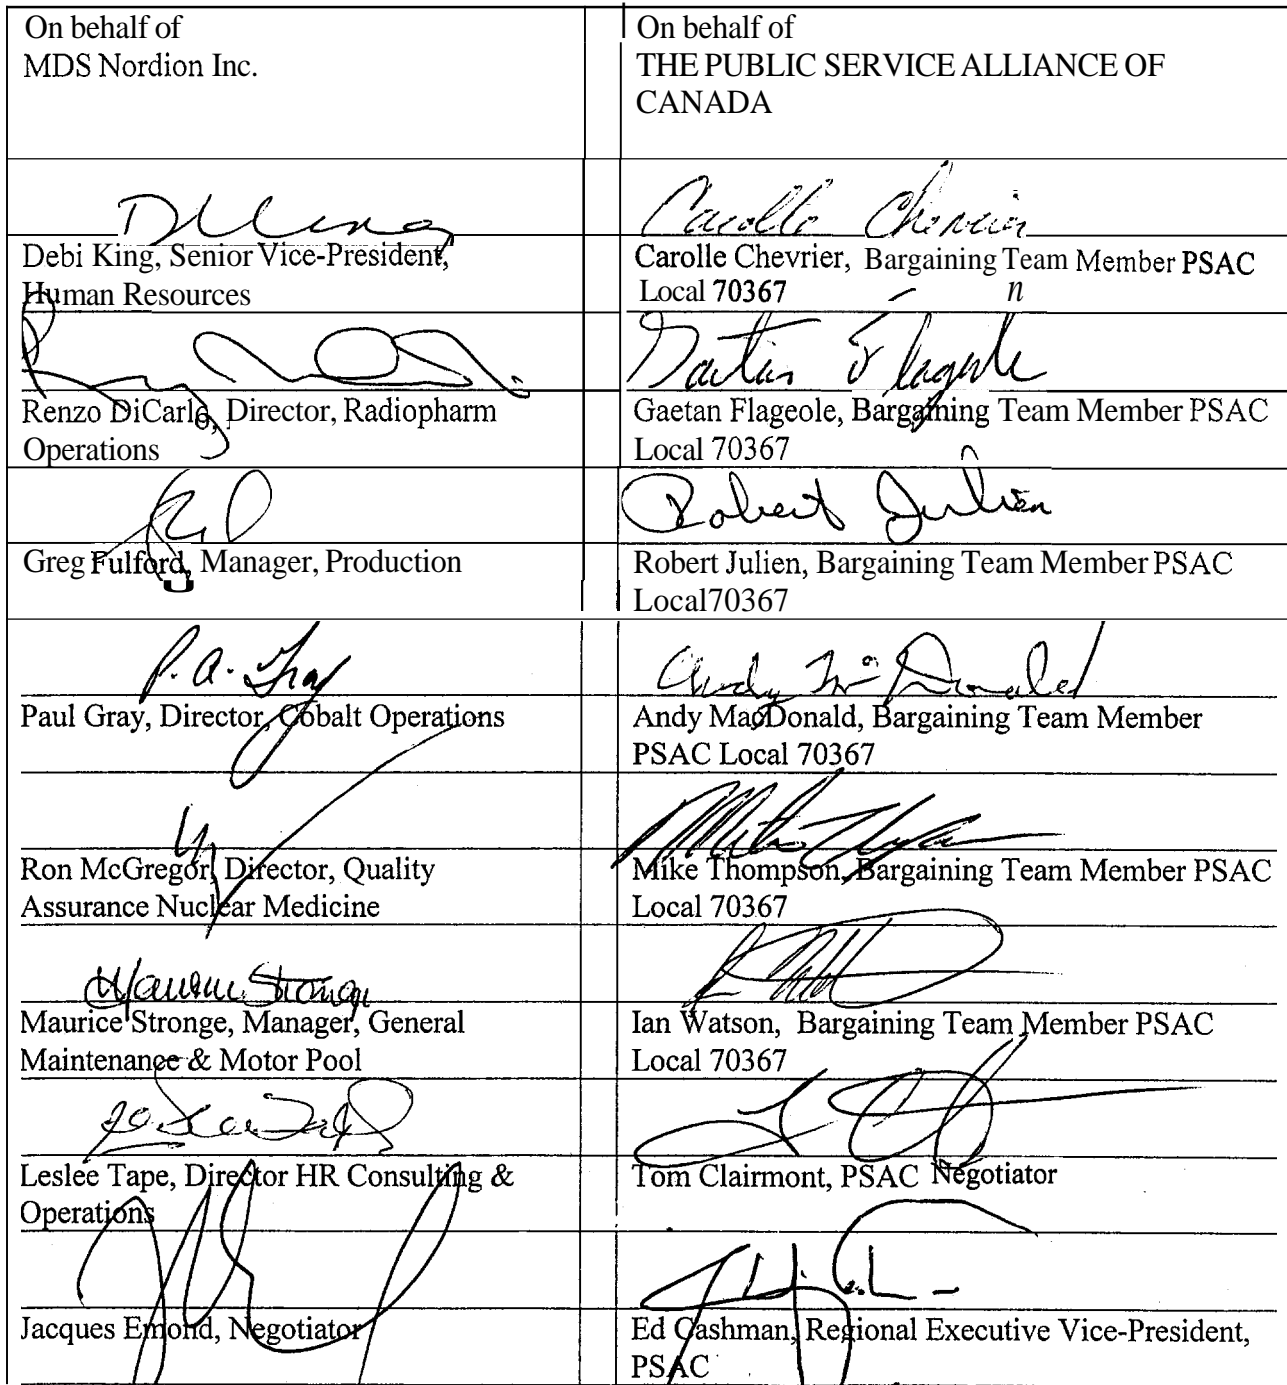 On behalf of
MDS Nordion Inc.
On behalf of
THE PUBLIC SERVICE ALLIANCE OF
CANADA
Debi King, Senior Vice-President,
Human Resources
Carolle Chevrier
Carolle Chevrier, Bargaining Team Member PSAC
Local 70367
n
Renzo DiCarlo, Director, Radiopharm
Operations
Gaetan Flageole
Gaetan Flageole, Bargaining Team Member PSAC
Local 70367
Greg Fulford, Manager, Production
Robert Julien
Robert Julien, Bargaining Team Member PSAC
Local70367
P. A. Gray
Paul Gray, Director, Cobalt Operations
Andy McDonald
Andy MacDonald, Bargaining Team Member
PSAC Local 70367
Ron McGregor, Director, Quality
Assurance Nuclear Medicine
Mike Thompson, Bargaining Team Member PSAC
Local 70367
Maurice Stronge
Maurice Stronge, Manager, General
Maintenance & Motor Pool
Ian Watson, Bargaining Team Member PSAC
Local 70367
Leslee Tape, Director HR Consulting &
Operations
Tom Clairmont, PSAC Negotiator
Jacques Emond, Negotiator
Ed Cashman, Regional Executive Vice-President,
PSAC